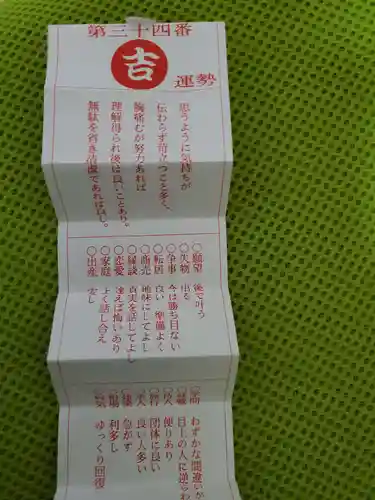 第三十四番
吉
運勢
思うように気持ちが
伝わらず苛立つこと多く、
胸痛むが努力あれば
理解得られ後は良いことあり。
無駄を省き清潔であれば良し。
○願望 後で叶う
○失物 出る
○争事 今は勝ち目ない
○転居 良い 準備よく
○商売 地味にしてよし
○縁談 真実を話してよし
○恋愛 逢えば悔いあり
○家庭 よく話し合え
○出産 安し
わずかな間違いが
目上の人に逆らわ
便りあり
団体に良い
良い人多い
急がず
利多し
ゆっくり回復